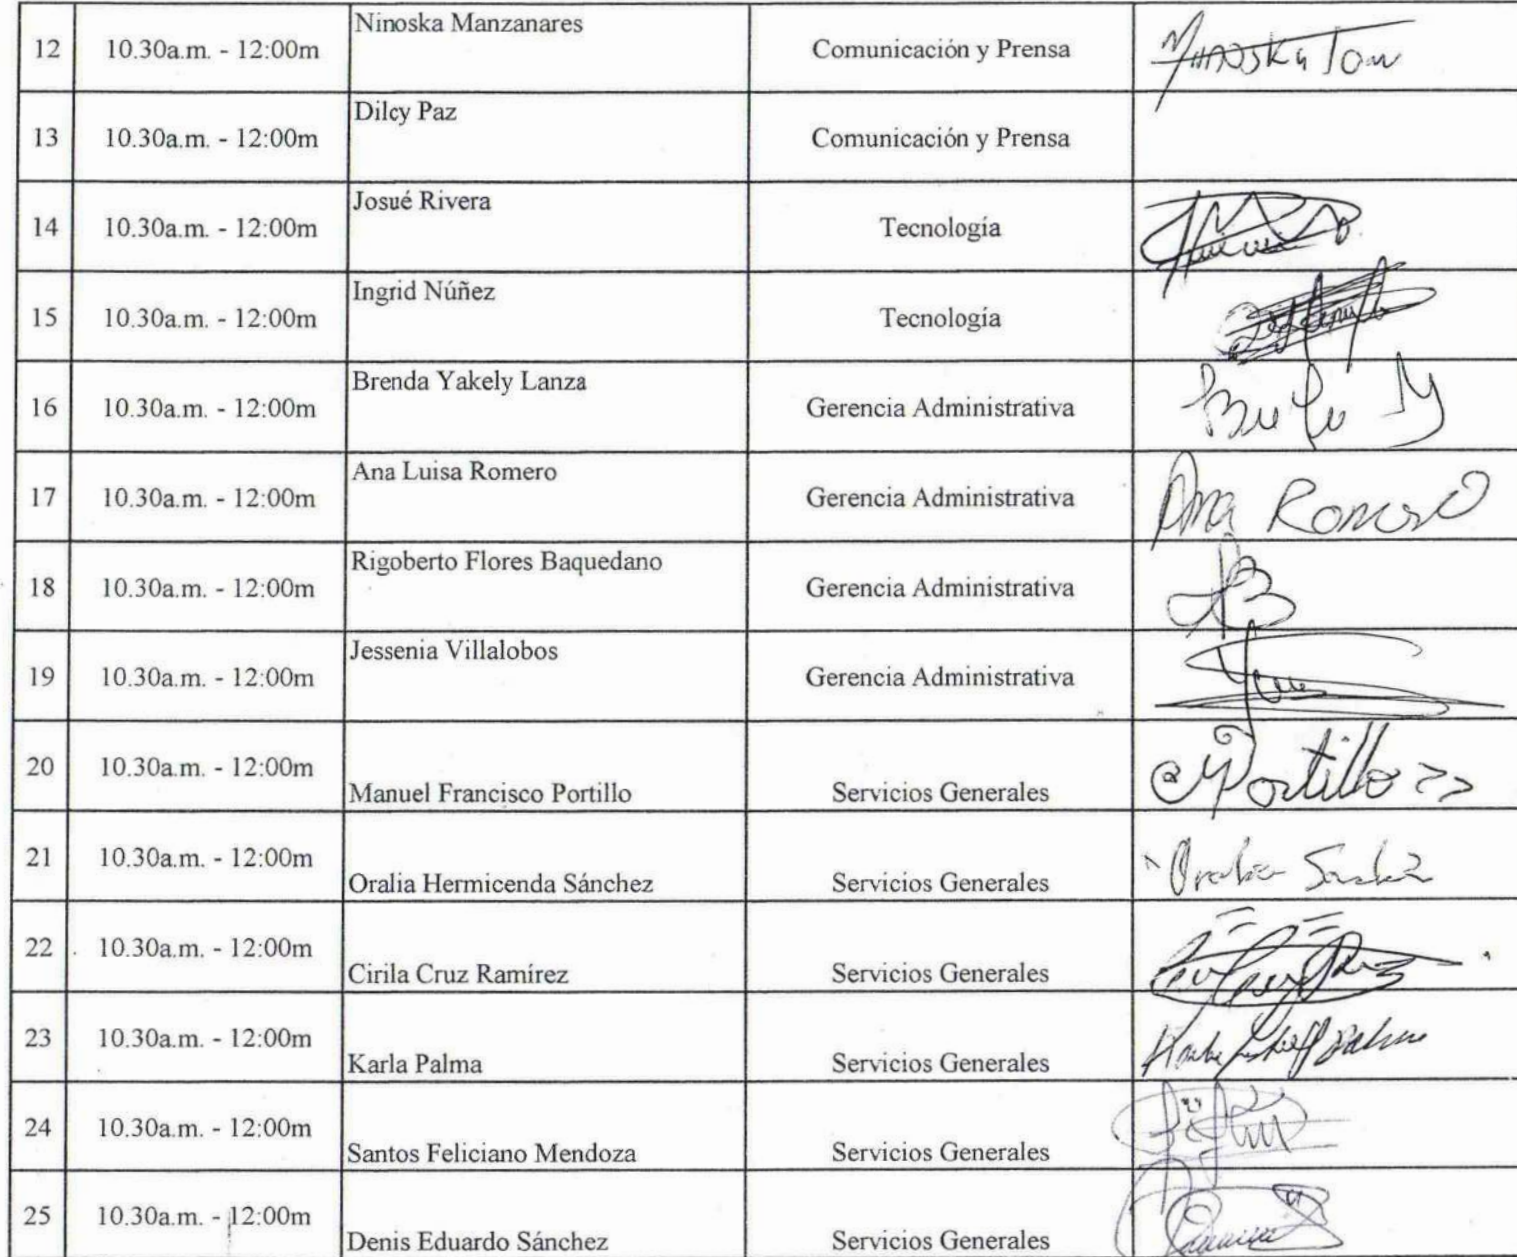 12 10.30a.m. - 12:00m Ninoska Manzanares Comunicación y Prensa
13 10.30a.m. - 12:00m Dilcy Paz Comunicación y Prensa
14 10.30a.m. - 12:00m Josué Rivera Tecnología
15 10.30a.m. - 12:00m Ingrid Núñez Tecnología
16 10.30a.m. - 12:00m Brenda Yakely Lanza Gerencia Administrativa
17 10.30a.m. - 12:00m Ana Luisa Romero Gerencia Administrativa Ana Romero
18 10.30a.m. - 12:00m Rigoberto Flores Baquedano Gerencia Administrativa
19 10.30a.m. - 12:00m Jessenia Villalobos Gerencia Administrativa
20 10.30a.m. - 12:00m Manuel Francisco Portillo Servicios Generales Portillo
21 10.30a.m. - 12:00m Oralia Hermicenda Sánchez Servicios Generales
22 10.30a.m. - 12:00m Cirila Cruz Ramírez Servicios Generales
23 10.30a.m. - 12:00m Karla Palma Servicios Generales
24 10.30a.m. - 12:00m Santos Feliciano Mendoza Servicios Generales
25 10.30a.m. - 12:00m Denis Eduardo Sánchez Servicios Generales